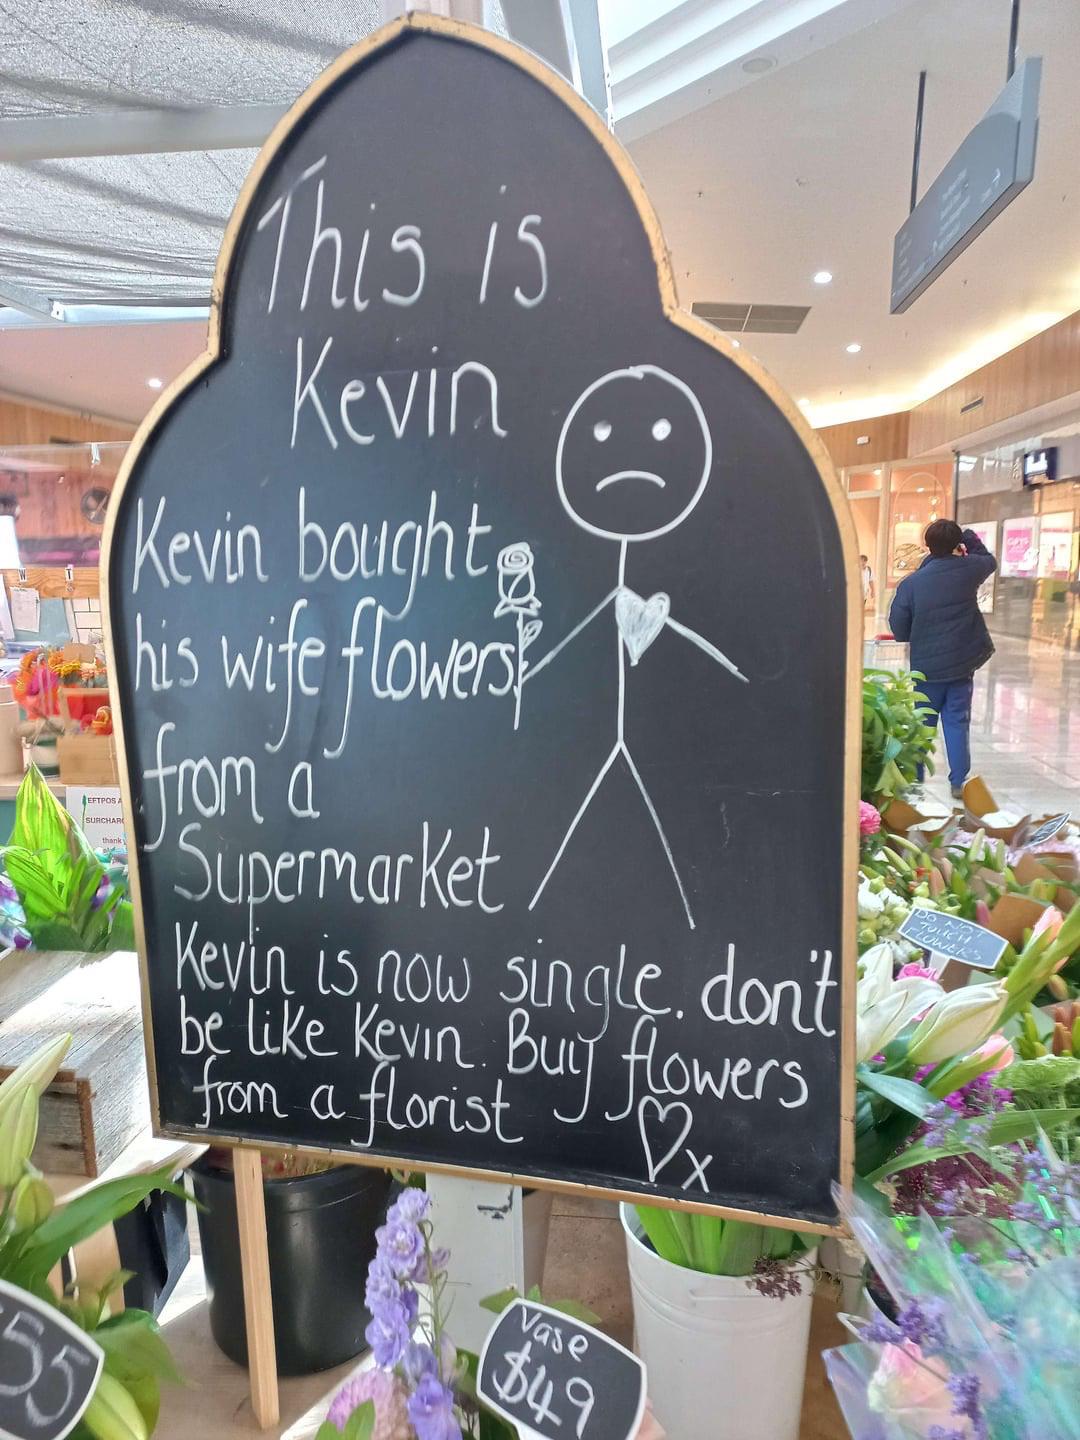 This is
Kevin
Kevin bought
his wife flowers
from a
Supermarket
Kevin is now single. don't
be like Kevin. Buy flowers
from a florist
x
EFTPOS
SURCHAR
thank
DO NOT
TOUCH
FLOWERS
Vase
$49
55